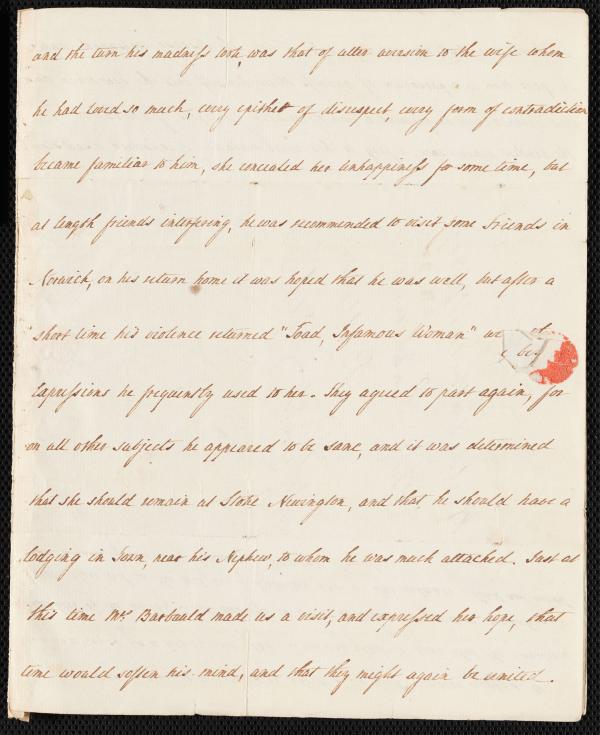 and the turn his madness took, was that of utter aversion to the wife whom
he had loved so much, every epithet of disrespect, every form of contradiction
became familiar to him, she concealed her unhappiness for some time, but
at length friends interfering, he was recommended to visit some Friends in
Norwich, on his return home it was hoped that he was well, but after a
short time his violence returned "Toad, Infamous Woman"
Expressions he frequently used to her. They agreed to part again, for
on all other subjects he appeared to be sane, and it was determined
that she should remain at Stoke Newington, and that he should have a
lodging in Town, near his Nephew, to whom he was much attached. Just at
this time Mrs. Barbauld made us a visit, and expressed her hope, that
time would soften his mind, and that they might again be united.